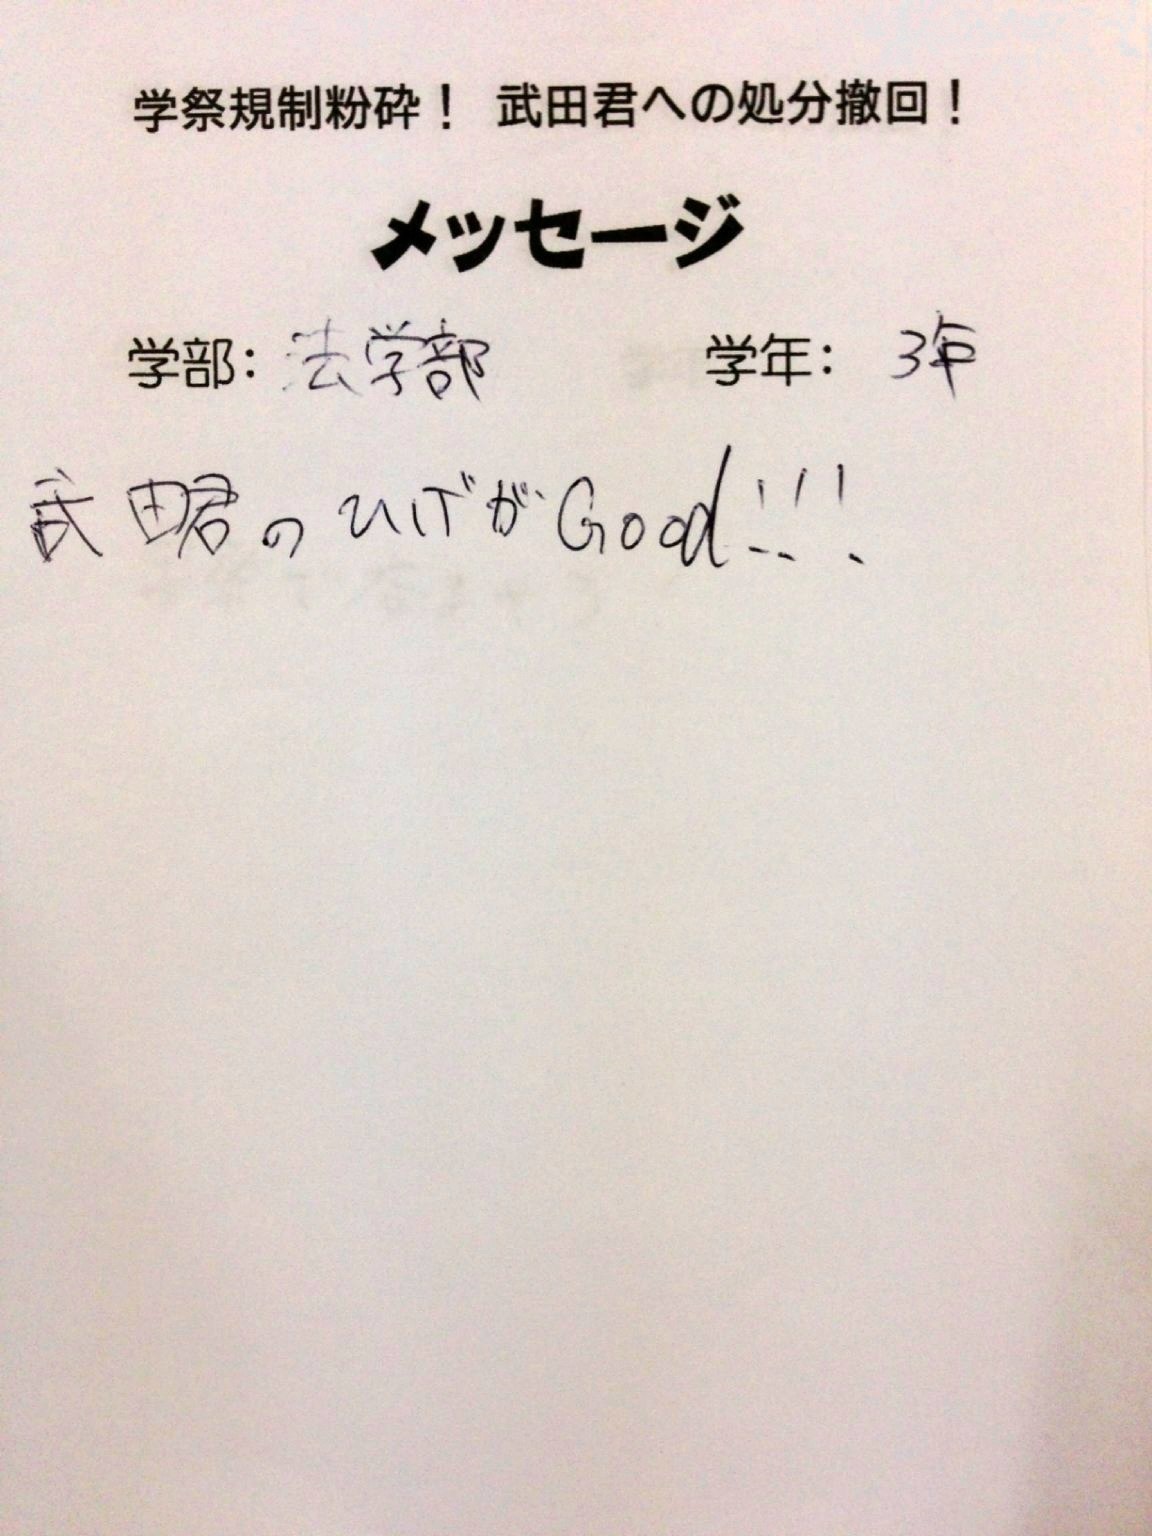 学祭規制粉砕！ 武田君への処分撤回！
メッセージ
学部： 法学部 学年： 3年
武田君のひげがGood!!!